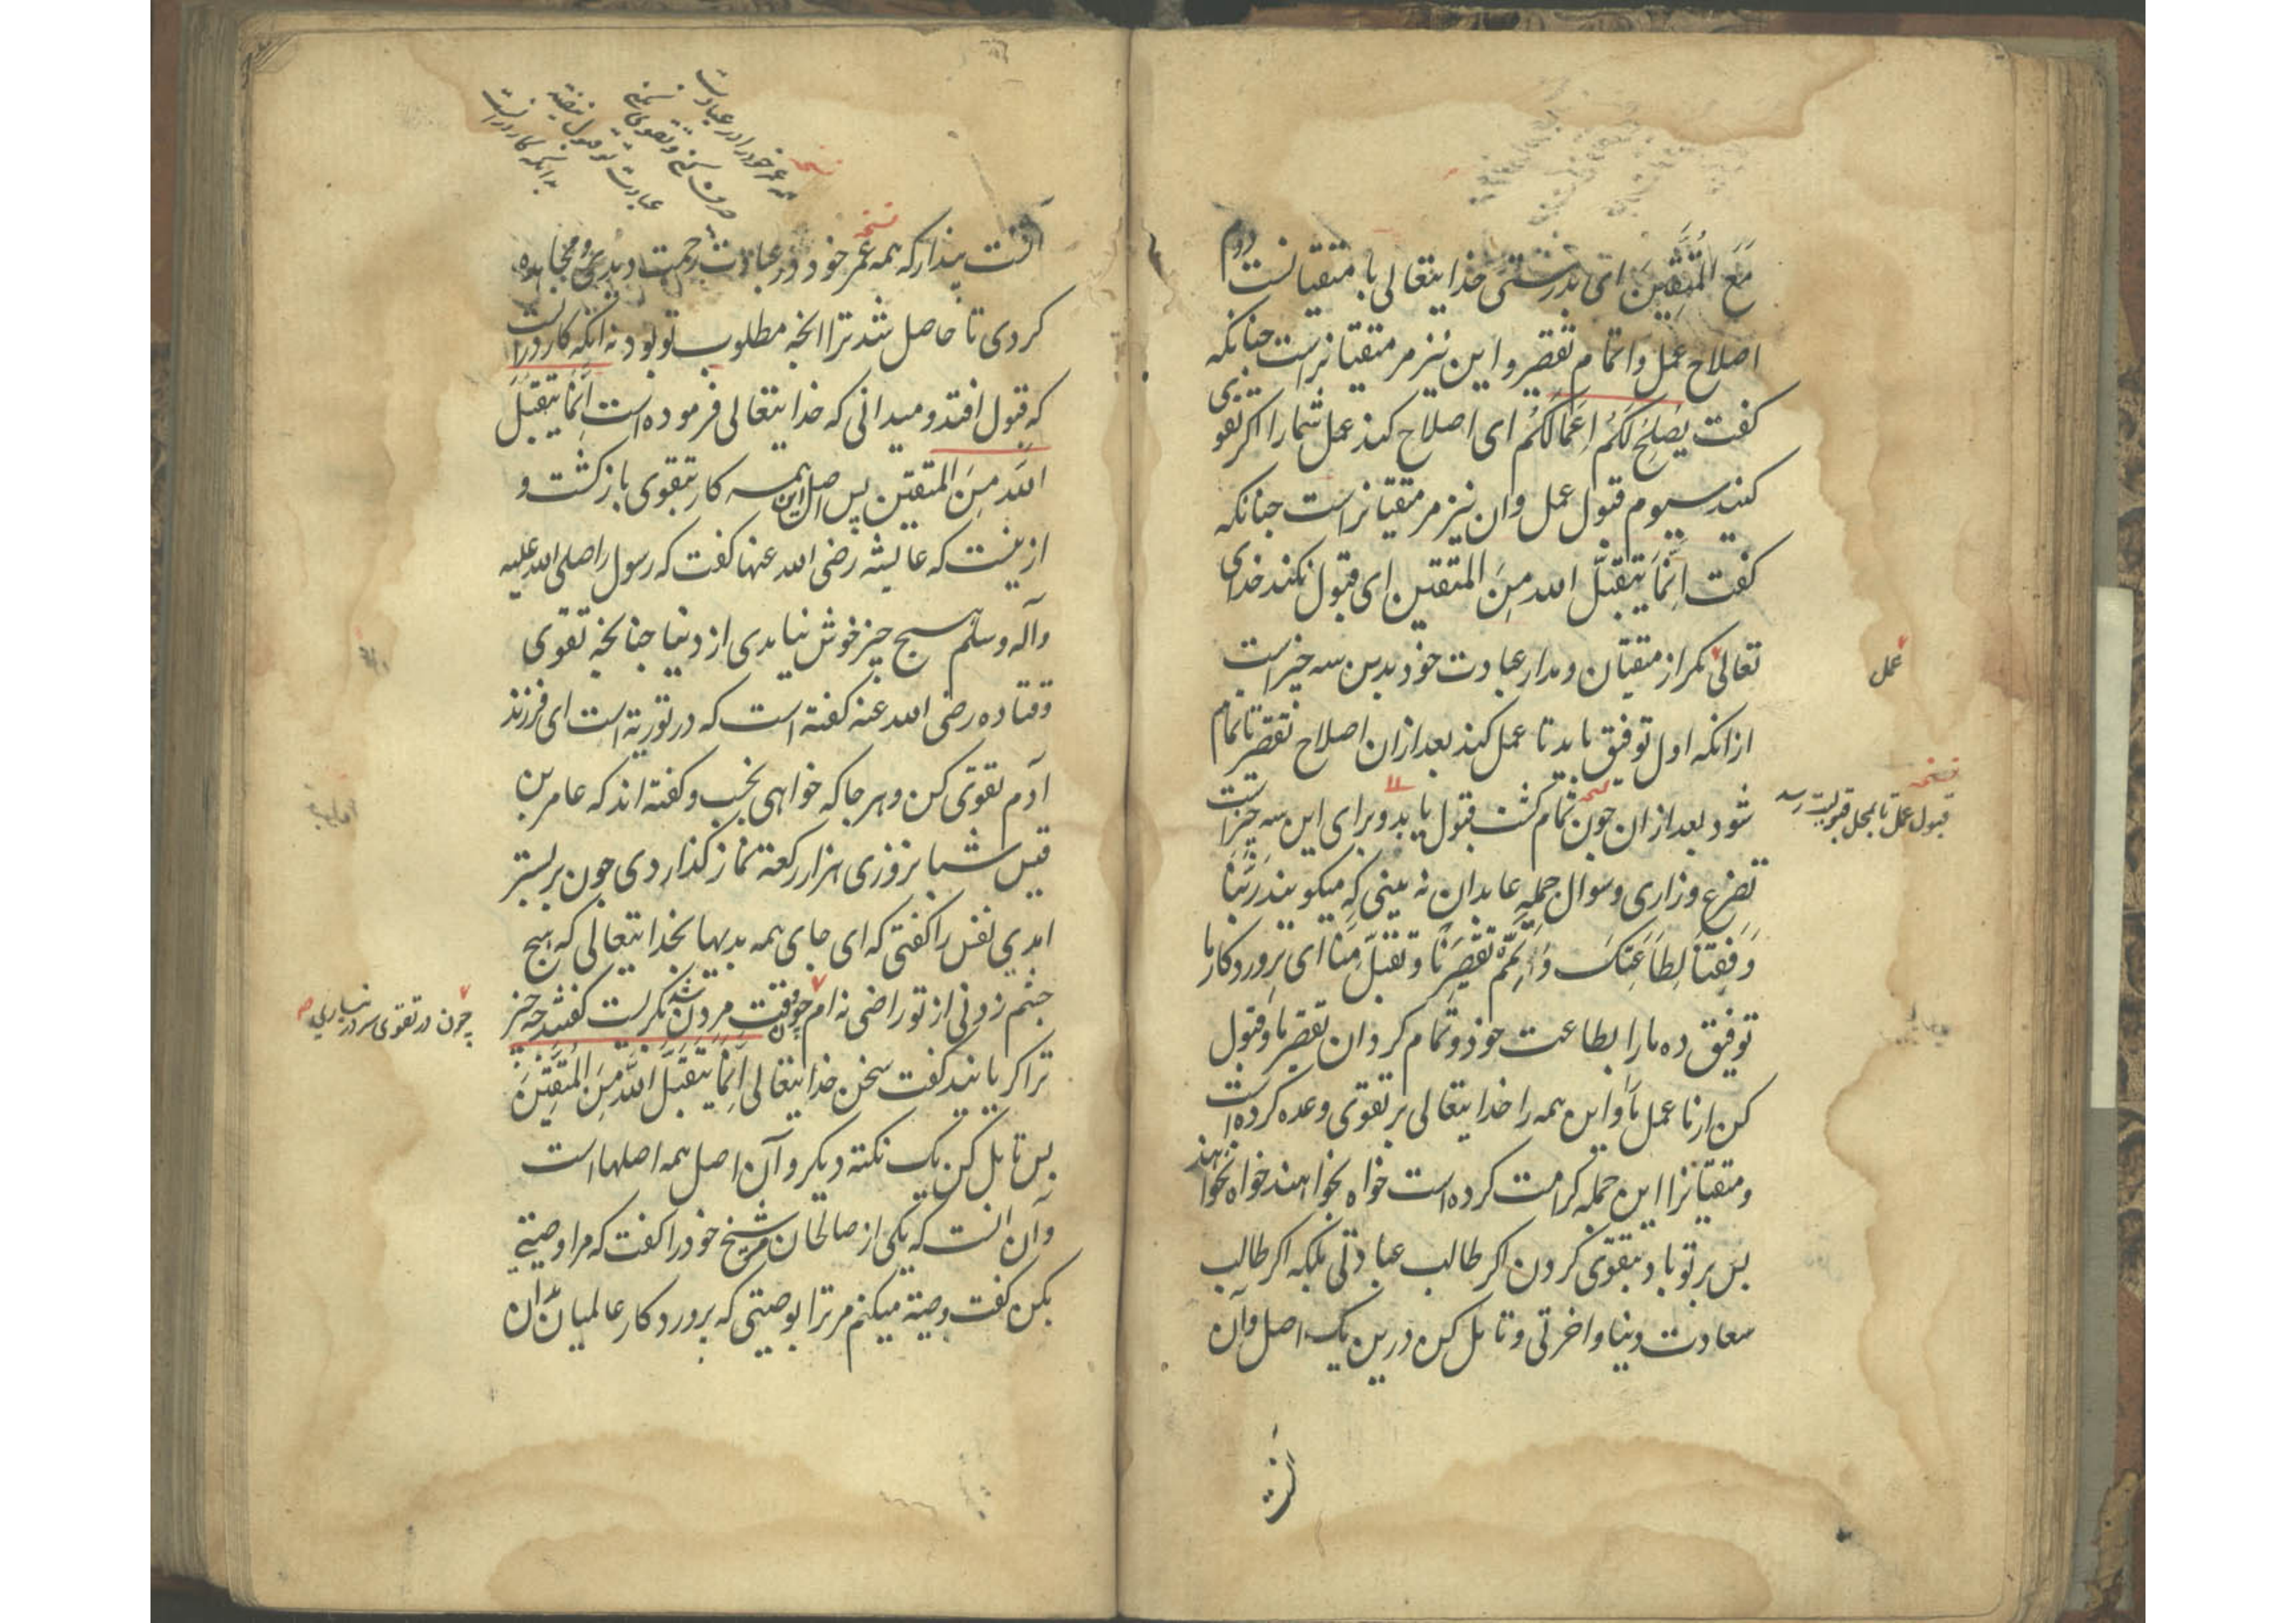 مَعَ المُتَّقِینَ ای بدرستی خدایتعالی با متقیانست دوم
اصلاح عمل واتمام تقصیر و این نیز مر متقیانراست جنانکه
کفت یُصْلِحْ لَکُمْ اَعْمالَکُمْ ای اصلاح کند عمل شمارا اکر تقوی
کنید سیوم قبول عمل وان نیز مر متقیانراست جنانکه
کفت اِنَّمَا یَتَقَبَّلُ الله مِنَ المتقین ای قبول نکند خدای
تعالی مکر از متقیان و مدار عبادت خود بدین سه جیز است
عمل
ازانکه اول توفیق باید تا عمل کند بعد ازان اصلاح تقصیر تا تمام
شود بعد ازان جون تمام کشت قبول یابد و برای این سه جیز است
نسخه
قبول عمل تا بمحل قبولیت رسد
تضرع و زاری و سوال جمله عابدان نه بینی که میکویند رَبَّنَا
وَفِّقْنَا لِطَاعَتِکَ وَاَتْمِمْ تَقْصِیرَنَا وتقبل مِنَّا ای پروردکار ما
توفیق ده مارا بطاعت خود و تمام کردان تقصیر ما و قبول
کن ازنا عمل ما و این همه را خدایتعالی بر تقوی وعده کرده است
و متقیانرا این جمله کرامت کرده است خواه بخواهند خواه نخواهند
بس بر تو باد بتقوی کردن اکر طالب عبادتی بلکه اکر طالب
سعادت دنیا و اخرتی و تامل کن درین یک اصل وآن
انست
نسخه
همه عمر خود را در عبادت
صرف کنی و تقوی نکنی
عبادت تو قبول نیفتد
بدانکه کار درانست
آنست بندار که همه عمر خود در عبادت زحمت دیدی و مجاهده
کردی تا حاصل شد ترا انجه مطلوب تو بود نه انکه کار درانست
که قبول افتد و میدانی که خدایتعالی فرموده است اِنَّمَا یَتَقَبَّلُ
اللهُ مِنَ المتقین بس اصل این همه کار بتقوی بازکشت و
ازینست که عایشه رضی الله عنها کفت که رسول را صلی الله علیه
وآله وسلم هیج جیز خوش نیامدی از دنیا جنانجه تقوی
وقتاده رضی الله عنه کفته است که در توریة است ای فرزند
آدم تقوی کن و هر جا که خواهی بخسب و کفته اند که عامر بن
قیس شبانروزی هزار رکعة نماز کذاردی جون بر بستر
امدی نفس را کفتی که ای جای همه بدیها بخدایتعالی که هیج
جشم زدنی از تو راضی نه ام جون وقت مردن شد بکریست کفتند جه جیز
چون در تقوی سر در نیاری صح
ترا کریانید کفت سخن خدایتعالی اِنَّمَا یَتَقَبَّلُ اللهُ مِنَ المُتَّقِینَ
بس تامل کن یک نکته دیکر و آن اصل همه اصلها است
وآن انست که یکی از صالحان مر شیخ خود را کفت که مرا وصیتی
بکن کفت وصیة میکنم مر ترا بوصیتی که بروردکار عالمیان بدان